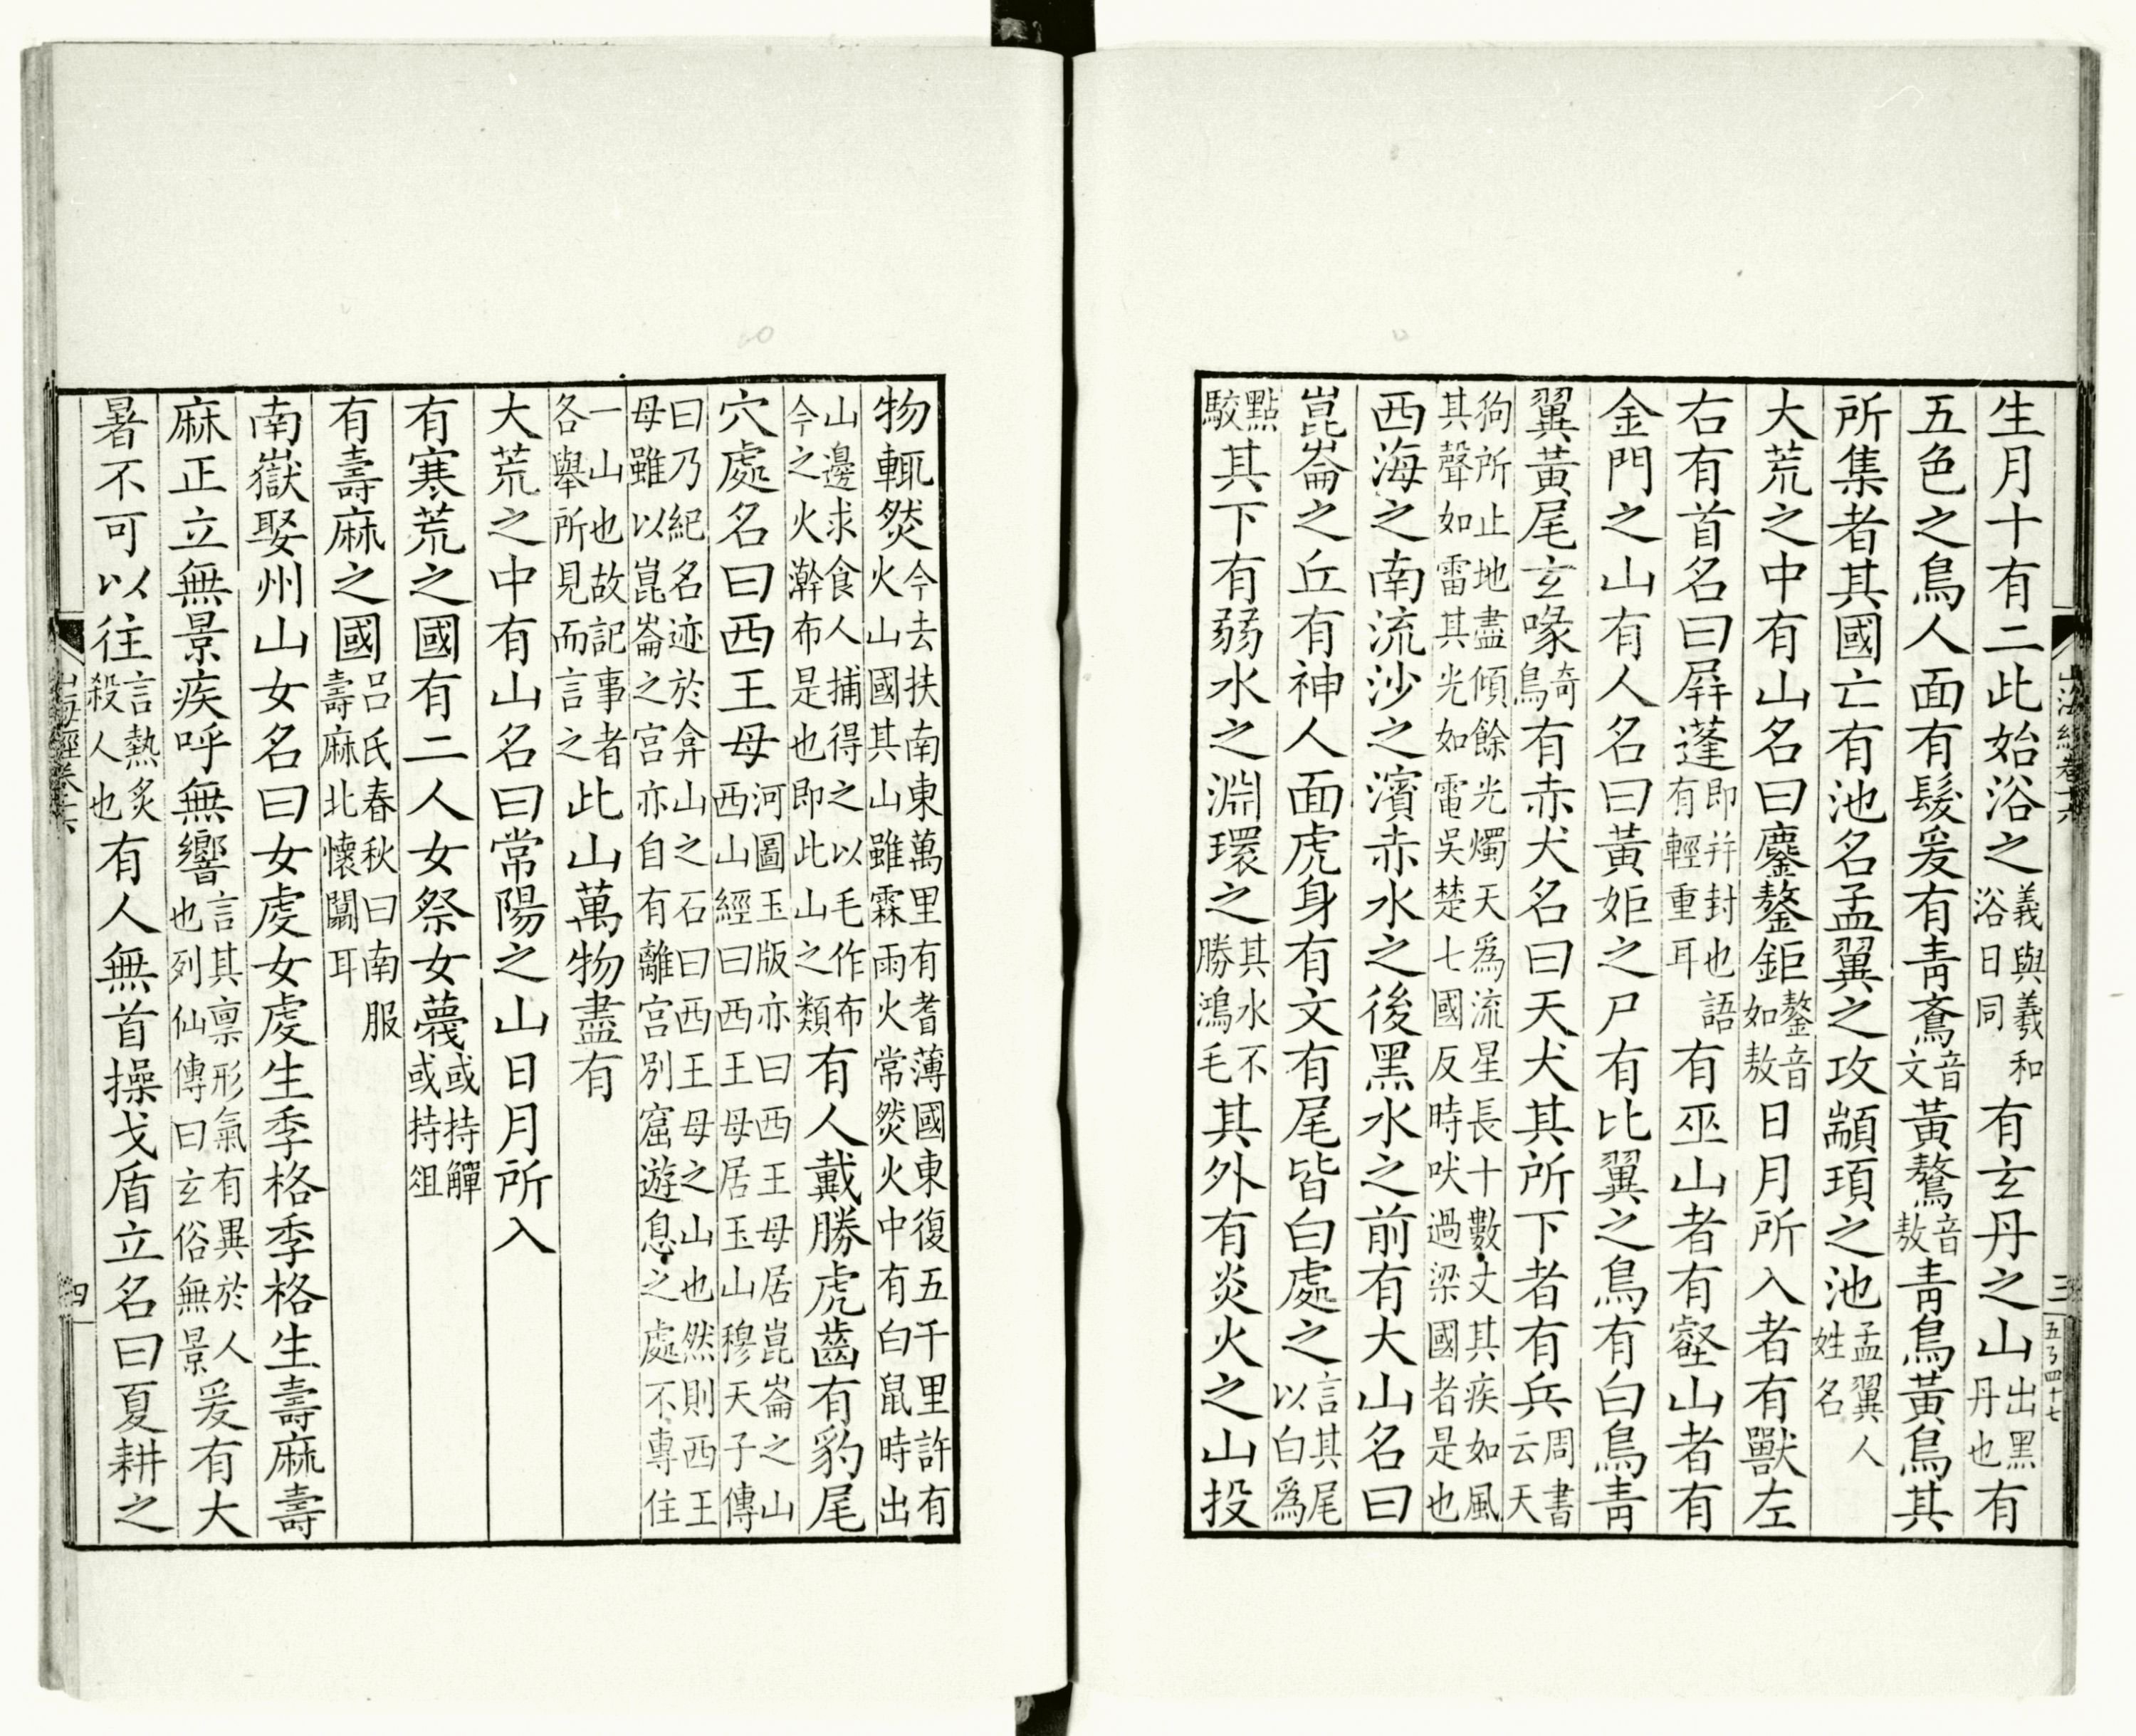 山海經卷十六
三
生月十有二此始浴之義與羲和浴日同有玄丹之山出黑丹也有
五色之鳥人面有髮爰有青鴍音文黃鷔音敖青鳥黃鳥其
所集者其國亡有池名孟翼之攻顓頊之池孟翼人姓名
大荒之中有山名曰鏖鏊鉅鏊音如敖日月所入者有獸左
右有首名曰屛蓬即幷封也語有輕重耳有巫山者有壑山者有
金門之山有人名曰黃姖之尸有比翼之鳥有白鳥青
翼黃尾玄喙奇鳥有赤犬名曰天犬其所下者有兵周書云天
狗所止地盡傾餘光燭天爲流星長十數丈其疾如風其聲如雷其光如電吳楚七國反時吠過梁國者是也
西海之南流沙之濱赤水之後黑水之前有大山名曰
崑崙之丘有神人面虎身有文有尾皆白處之言其尾以白爲
點駮其下有弱水之淵環之其水不勝鴻毛其外有炎火之山投
物輒焚今去扶南東萬里有耆薄國東復五千里許有火山國其山雖霖雨火常焚火中有白鼠時出
山邊求食人捕得之以毛作布今之火澣布是也即此山之類有人戴勝虎齒有豹尾
穴處名曰西王母河圖玉版亦曰西王母居崑崙之山西山經曰西王母居玉山穆天子傳
曰乃紀名迹於弇山之石曰西王母之山也然則西王母雖以崑崙之宮亦自有離宮別窟遊息之處不專住
一山也故記事者各舉所見而言之此山萬物盡有
大荒之中有山名曰常陽之山日月所入
有寒荒之國有二人女祭女薎或持觶或持俎
有壽麻之國呂氏春秋曰南服壽麻北懷闟耳
南嶽娶州山女名曰女虔女虔生季格季格生壽麻壽
麻正立無景疾呼無響言其稟形氣有異於人也列仙傳曰玄俗無景爰有大
暑不可以往言熱炙殺人也有人無首操戈盾立名曰夏耕之
山海經卷十六
四